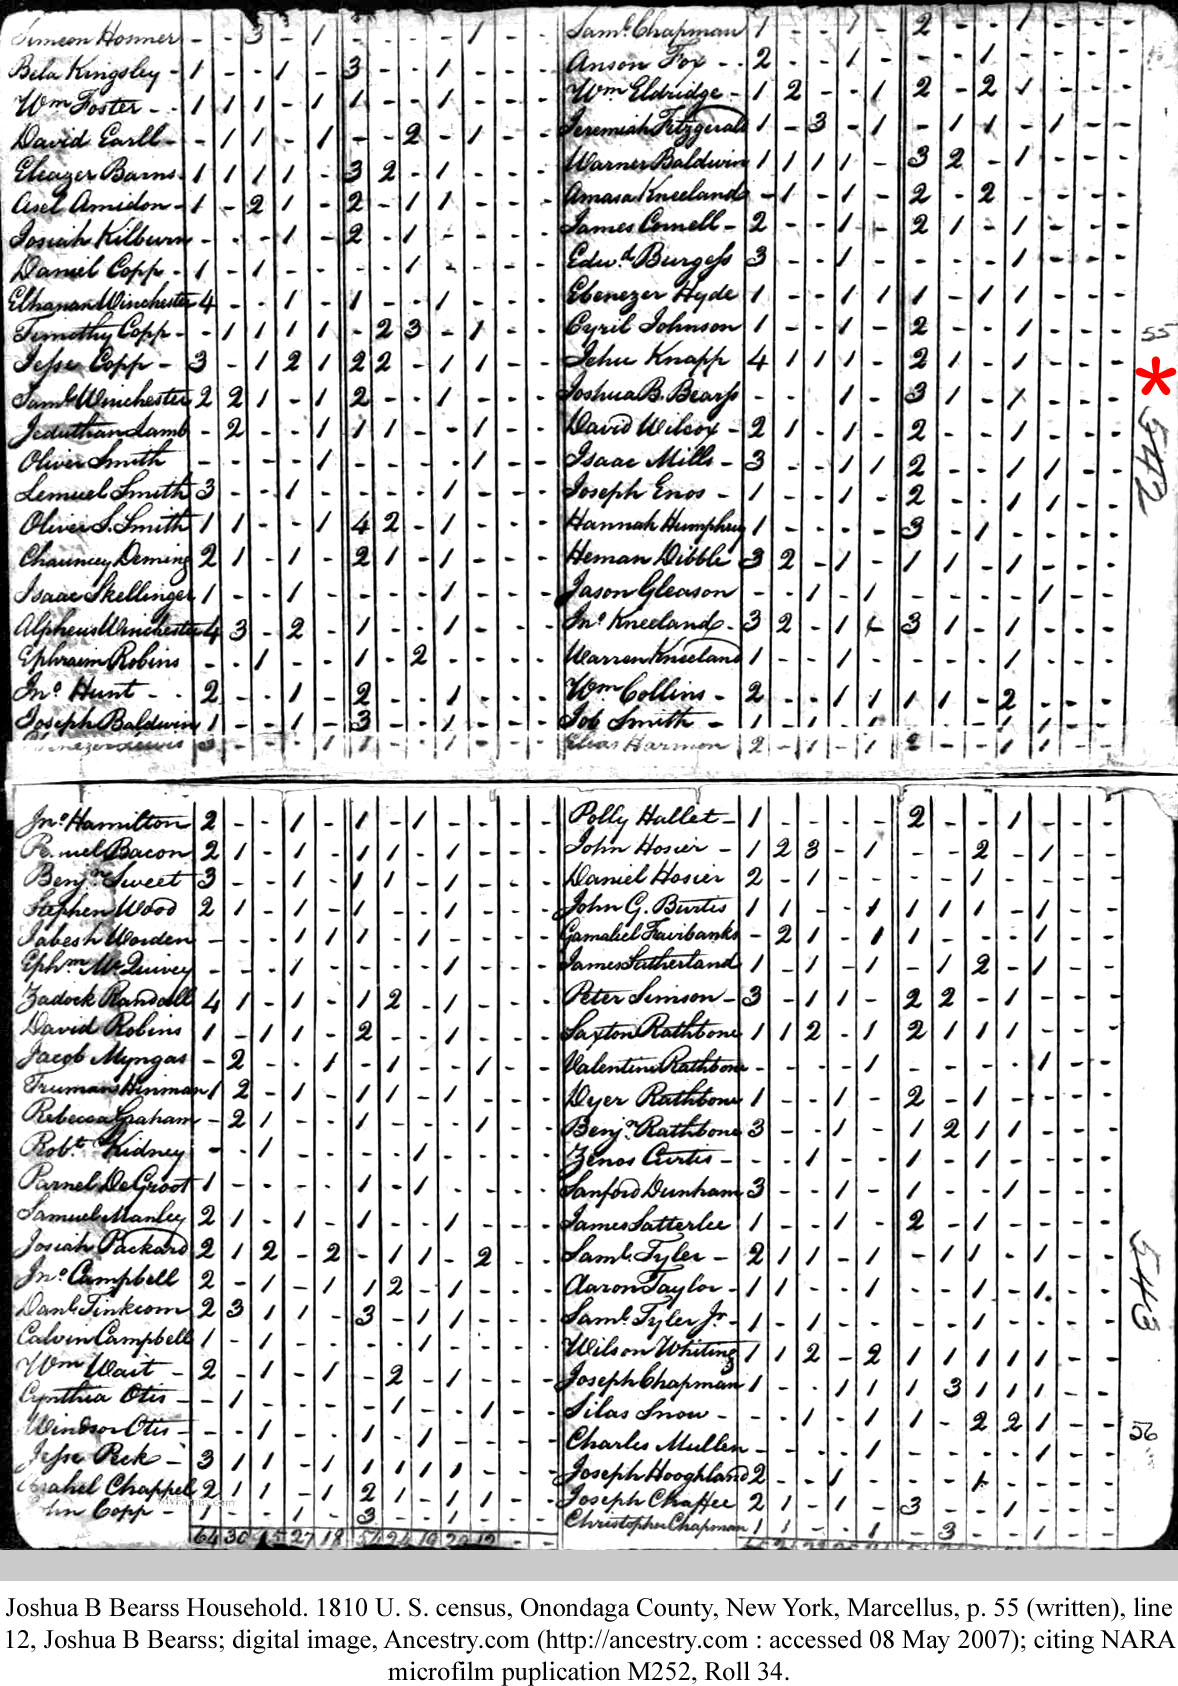 Simeon Hosmer - - 3 - 1 - - - - 1 - - -
Bela Kingsley - 1 - - 1 - 3 - - 1 - - -
Wm Foster - - 1 1 1 - 1 1 - - 1 - - -
David Earll - - 1 1 - 1 - - 2 - 1 - -
Eleazer Barns - 1 1 1 1 - 3 2 - 1 - - -
Asel Amidon - 1 - 2 1 - 2 - 1 1 - - -
Josiah Kilburn - - - 1 - 2 - 1 - - - -
Daniel Copp - 1 - 1 - - - - 1 - - - -
Elhanan Winchester 4 - - 1 - 1 - - 1 - - -
Timothy Copp - - 1 1 1 1 - 2 3 - 1 - -
Jesse Copp - 3 - 1 2 1 2 2 - 1 1 - -
Saml Winchester 2 2 1 - 1 2 - - - 1 - -
Jeduthan Lamb - 2 - - 1 1 1 - - 1 - -
Oliver Smith - - - - 1 - - - - 1 - -
Lemuel Smith 3 - - 1 - - - - 1 - - -
Oliver S. Smith 1 1 - - 1 4 2 - 1 - - -
Chauncey Deming 2 1 - 1 - 2 1 - 1 - - -
Isaac Skellinger 1 - - 1 - - - - 1 - - -
Alpheus Winchester 4 3 - 2 - 1 - - 1 - - -
Ephraim Robins - - 1 - - 1 - 2 - - - -
Jno Hunt - - 2 - - 1 - 2 - - 1 - - -
Joseph Baldwin 1 - - 1 - 3 - - 1 - - -
Saml Chapman 1 - - 1 - 2 - - 1 - - -
Anson Fox - - 2 - - 1 - - - 1 - - - -
Wm Eldridge - 1 2 - - 1 2 - 2 - - - -
Jeremiah Fitzgerald 1 - 3 - 1 - 1 1 - 1 - -
Warner Baldwin 1 1 1 1 - 3 2 - 1 - - -
Amasa Kneeland - 1 - 1 - 2 - 2 - - - -
James Cornell - 2 - - 1 - 2 1 - 1 - - -
Edwd Burgess 3 - - 1 - - - - 1 - - -
Ebenezer Hyde 1 - - 1 1 1 - 1 1 - - -
Cyril Johnson 1 - - 1 - 2 - - 1 - - -
Jehu Knapp 4 1 1 1 - 2 1 - 1 - - -
Joshua B. Bearss - - - 1 - 3 1 - 1 - - -
David Wilcox - 2 1 - 1 - 2 - - 1 - - -
Isaac Mills - 3 - - 1 1 2 - - 1 1 - -
Joseph Enos - 1 - - 1 - 2 - - 1 1 - -
Hannah Humphrey 1 - - - - 3 - 1 - - - -
Heman Dibble 3 2 - 1 - 1 1 - 1 - - -
Jason Gleason - - 1 - 1 - - - - 1 - -
Jno Kneeland - 3 2 - 1 1 3 1 - 1 - - -
Warren Kneeland 1 - - 1 - - - - 1 - - -
Wm Collins - 2 - - 1 1 1 1 - 2 - - -
Job Smith - 1 - 1 - 1 - 1 - 1 1 - -
Elias Harmon 2 - 1 - 1 2 - - 1 1 - -
55
*
542
Jno Hamilton 2 - - 1 - 1 - 1 - - - -
Bacon 2 1 - 1 - 1 1 - 1 - - -
Benjn Sweet 3 - - 1 - 1 1 - 1 - - -
Stephen Wood 2 1 - 1 - 1 - - 1 - - -
Jabesh Worden - - - 1 1 1 - 1 - - - -
Ephm McQuivey - - - 1 - - - - 1 - - -
Zadock Randall 4 1 - 1 - 1 2 - 1 - - -
David Robins 1 - 1 1 - 2 - - 1 - - -
Jacob Myngas - 2 - - 1 - 1 - - 1 - -
Truman Hinman 1 2 - 1 - 1 1 - 1 - - -
Rebecca Graham - 2 1 - - 1 - - - 1 - -
Robt Kidney - - 1 - - - - 1 - - - -
Parnel DeGroot 1 - - - - 1 - 1 - - - -
Samuel Manley 2 1 - 1 - 1 - - 1 - - -
Josiah Packard 2 1 2 - 2 - 1 1 - 2 - -
Jno Campbell 2 - 1 - 1 1 2 - 1 - - -
Danl Tinkcom 2 3 1 1 - 3 - 1 1 - - -
Calvin Campbell 1 - 1 - - - - 1 - - - -
Wm Wait - 2 - 1 - 1 - 2 - 1 - - -
Cynthia Otis - - 1 - - - - 1 - - 1 - -
Windsor Otis - - - 1 - - 1 - 1 - - - -
Jesse Peck - 3 1 1 - 1 1 1 1 1 - - -
Chappel 2 1 1 - 1 2 1 - 1 1 - -
Copp - 1 - - 1 - 3 - - 1 - - -
Polly Hallet - 1 - - - - 2 - - 1 - - -
John Hosier - 1 2 3 - 1 - - 2 - 1 - -
Daniel Hosier 2 - 1 - - - - 1 - - - -
John G. Burtis 1 1 - - 1 1 1 1 - 1 - -
Gamaliel Fairbanks - 2 1 - 1 1 - - - 1 - -
James Sutherland 1 - 1 - 1 - 1 2 - 1 - -
Peter Simson - 3 - 1 1 - 2 2 - 1 - - -
Saxton Rathbone 1 1 2 - 1 2 1 1 1 - - -
Valentine Rathbone - - - - 1 - - - - 1 - -
Dyer Rathbone 1 - - 1 - 2 - 1 - - - -
Benjn Rathbone 3 - - 1 - 1 2 1 1 - - -
Zenos Curtis - - - 1 - - 1 - 1 - - - -
Sanford Dunham 3 - - 1 - 1 - - 1 - - -
James Satterlee 1 - - 1 - 2 - 1 - - - -
Saml Tyler - 2 1 1 - 1 - 1 1 - 1 - -
Aaron Taylor - 1 1 - - 1 - - 1 - 1 - -
Saml Tyler Jr - 1 - 1 - - - - 1 - - - -
Wilson Whiting 1 1 2 - 2 1 1 1 1 1 - -
Joseph Chapman 1 - - 1 1 1 3 1 1 1 - -
Silas Snow - - - 1 - 1 1 - 2 2 1 - -
Charles Mullen - - - - 1 - - - - 1 - -
Joseph Hooghland 2 - - 1 - - - 1 - - - -
Joseph Chaffee 2 1 - 1 - 3 - - 1 - - -
Christopher Chapman 1 1 - - 1 - 3 - - 1 - -
543
56
Joshua B Bearss Household. 1810 U. S. census, Onondaga County, New York, Marcellus, p. 55 (written), line
12, Joshua B Bearss; digital image, Ancestry.com (http://ancestry.com : accessed 08 May 2007); citing NARA
microfilm puplication M252, Roll 34.